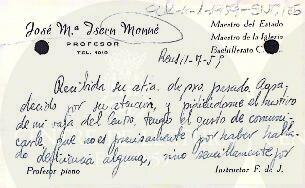 José Mª Isern Monné
PROFESOR
TEL. 1010
Maestro del Estado
Maestro de la Iglesia
Bachillerato C
Reus 11-7-59
Recibida su atta. de pro. pasado. Agra-
decido por su atención, y pidiéndome el motivo
de mi baja del Centro, tengo el gusto de comuni-
carle que no es precisamente por haber habido
deficiencia alguna, sino sencillamente por
Profesor pieno
Instructor F. de J.